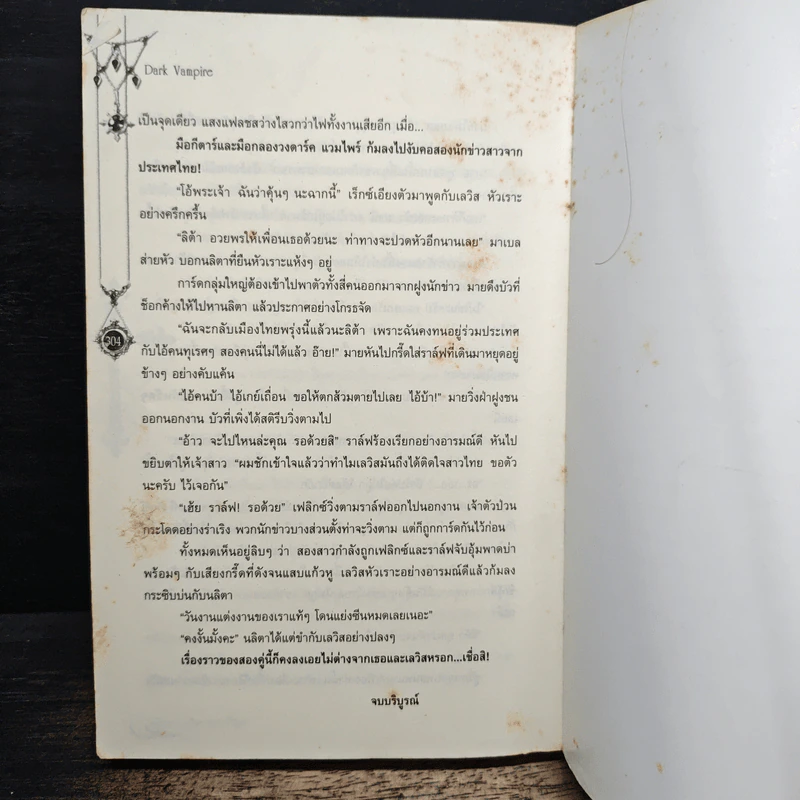 Dark Vampire
เป็นจุดเดียว แสงแฟลชสว่างไสวกว่าไฟทั้งงานเสียอีก เมื่อ...
มือกีตาร์และมือกลองวงดาร์ค แวมไพร์ ก้มลงไปงับคอสองนักข่าวสาวจาก
ประเทศไทย!
"โอ้พระเจ้า ฉันว่าคุ้นๆ นะฉากนี้" เร็กซ์เอียงตัวมาพูดกับเลวิส หัวเราะ
อย่างครึกครื้น
"ลิต้า อวยพรให้เพื่อนเธอด้วยนะ ท่าทางจะปวดหัวอีกนานเลย" มาเบล
ส่ายหัว บอกนลิตาที่ยืนหัวเราะแห้งๆ อยู่
การ์ดกลุ่มใหญ่ต้องเข้าไปพาตัวทั้งสี่คนออกมาจากฝูงนักข่าว มายดึงบัวที่
ช็อกค้างให้ไปหานลิตา แล้วประกาศอย่างโกรธจัด
"ฉันจะกลับเมืองไทยพรุ่งนี้แล้วนะลิต้า เพราะฉันคงทนอยู่ร่วมประเทศ
304
กับไอ้คนทุเรศๆ สองคนนี่ไม่ได้แล้ว อ๊าย!" มายหันไปกรี๊ดใส่ราล์ฟที่เดินมาหยุดอยู่
ข้างๆ อย่างคับแค้น
"ไอ้คนบ้า ไอ้เกย์เถื่อน ขอให้ตกส้วมตายไปเลย ไอ้บ้า!" มายวิ่งฝ่าฝูงชน
ออกนอกงาน บัวที่เพิ่งได้สติรีบวิ่งตามไป
"อ้าว จะไปไหนล่ะคุณ รอด้วยสิ" ราล์ฟร้องเรียกอย่างอารมณ์ดี หันไป
ขยิบตาให้เจ้าสาว "ผมชักเข้าใจแล้วว่าทำไมเลวิสมันถึงได้ติดใจสาวไทย ขอตัว
นะครับ ไว้เจอกัน"
"เฮ้ย ราล์ฟ! รอด้วย" เฟลิกซ์วิ่งตามราล์ฟออกไปนอกงาน เจ้าตัวป่วน
กระโดดอย่างร่าเริง พวกนักข่าวบางส่วนตั้งท่าจะวิ่งตาม แต่ก็ถูกการ์ดกันไว้ก่อน
ทั้งหมดเห็นอยู่ลิบๆ ว่า สองสาวกำลังถูกเฟลิกซ์และราล์ฟจับอุ้มพาดบ่า
พร้อมๆ กับเสียงกรี๊ดที่ดังจนแสบแก้วหู เลวิสหัวเราะอย่างอารมณ์ดีแล้วก้มลง
กระซิบบ่นกับนลิตา
"วันงานแต่งงานของเราแท้ๆ โดนแย่งซีนหมดเลยเนอะ"
"คงงั้นมั้งคะ" นลิตาได้แต่ขำกับเลวิสอย่างปลงๆ
เรื่องราวของสองคู่นี้ก็คงลงเอยไม่ต่างจากเธอและเลวิสหรอก...เชื่อสิ!
จบบริบูรณ์